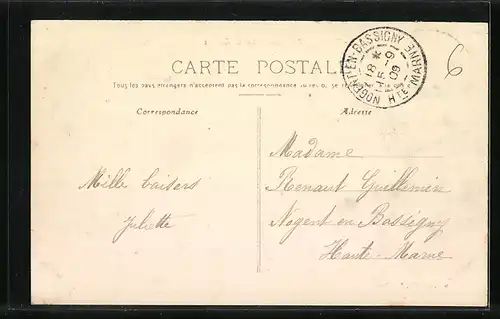 NOGENT-EN-BASSIGNY
18 *
5-9
09
HTE-MARNE
6
CARTE POSTALE
Tous les pays étrangers n'acceptent pas la correspondance au
Correspondance
Adresse
Mille baisers
Juliette
Madame
Renaut Guillemin
Nogent en Bassigny
Haute-Marne